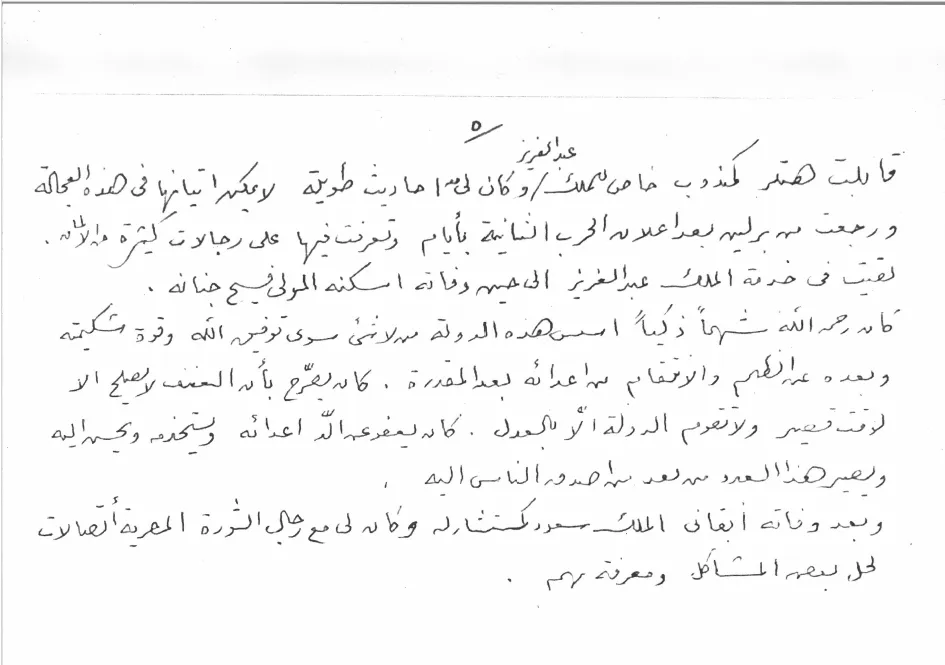 ٥
عبد العزيز
قابلت هتلر كمندوب خاص للملك / وكان لي معه احاديث طويلة لا يمكن اتيانها في هذه العجالة
ورجعت من برلين بعد اعلان الحرب الثانية بأيام وتعرفت فيها على رجالات كثيرة من الالمان .
بقيت في خدمة الملك عبد العزيز الى حين وفاته اسكنه المولى فسيح جنانه .
كان رحمه الله شهماً ذكياً اسس هذه الدولة من لا شئ سوى توفيق الله وقوة شكيمته
وبعده عن الظلم والانتقام من اعدائه بعد المقدرة . كان يصرّح بأن العنف لا يصلح الا
لوقت قصير ولا تقوم الدولة الاّ بالعدل . كان يعفو عن الدّ اعدائه ويستخدمه ويحسن اليه
ويصير هذا العدو من بعد من اصدق الناس اليه .
وبعد وفاته أبقاني الملك سعود كمستشار له وكان لي مع رجال الثورة المصرية أتصالات
لحل بعض المشاكل ومعرفة بهم .